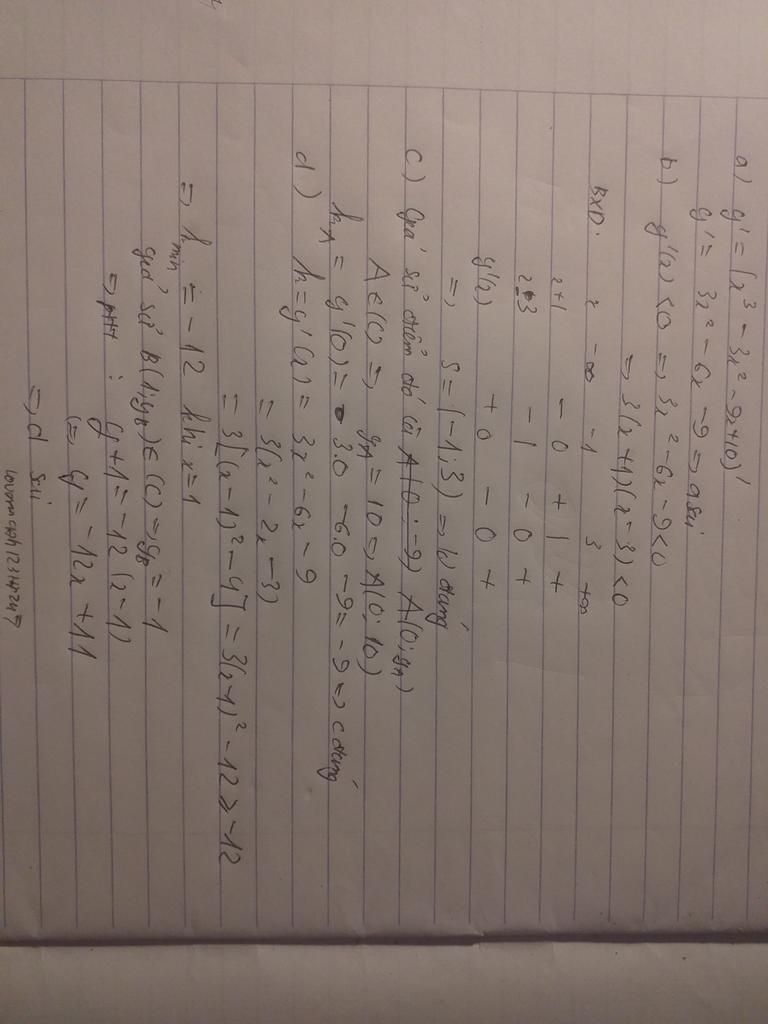 a) y' = (x³ - 3x² - 9x + 10)'
y' = 3x² - 6x - 9 => a sai
b) y'(x) < 0 => 3x² - 6x - 9 < 0
=> 3(x+1)(x-3) < 0
BXD: x -∞ -1 3 +∞
x+1 - 0 + | +
x-3 - | - 0 +
y'(x) + 0 - 0 +
=> S = (-1; 3) => b đúng
c) Giả sử điểm đó là A(0; -9) A(0; yA)
A ∈ (C) => yA = 10 => A(0; 10)
kA = y'(0) = 3.0 - 6.0 - 9 = -9 => c đúng
d) k = y'(x) = 3x² - 6x - 9
= 3(x² - 2x - 3)
= 3[(x-1)² - 4] = 3(x-1)² - 12 ≥ -12
=> kmin = -12 khi x = 1
giả sử B(1; yB) ∈ (C) => yB = -1
=> pttt : y + 1 = -12(x-1)
(=) y = -12x + 11
=> d sai